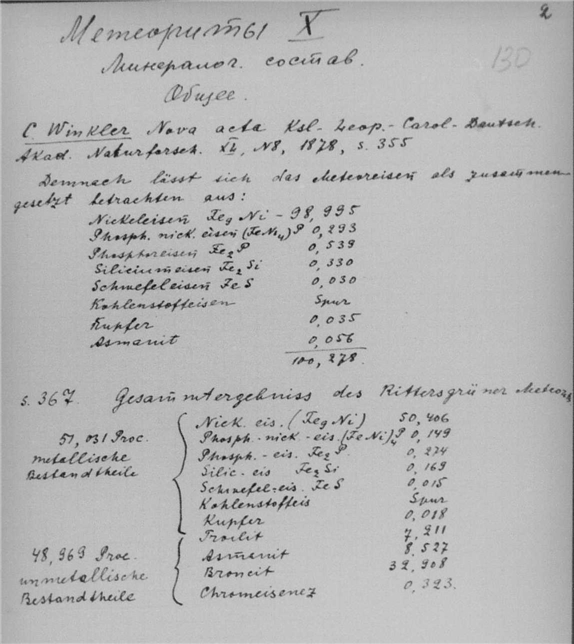 2
130
Метеориты X
Минералог. состав.
Общее.
C. Winkler Nova acta Ksl-Leop.-Carol-Deutsch.
Akad. Naturforsch. XL, N8, 1878, s. 355
Demnach lässt sich das Meteoreisen als zusammen
gesetzt betrachten aus:
Nickeleisen Fe9 Ni – 98,995
Phosph. nick. eisen (FeNi4)P 0,293
Phosphoreisen Fe2P 0,539
Siliciumeisen Fe2Si 0,330
Schwefeleisen FeS 0,030
Kohlenstoffeisen Spur
Kupfer 0,035
Asmanit 0,056
100,278.
s. 367. Gesammtergebniss des Rittersgrüner
Nick. eis. (Fe9Ni) 50,406
51,031 Proc. Phosph.-nick-eis.(FeNi)4P 0,149
metallische Phosph.-eis. Fe2P. 0,274
Bestandtheile Silic-eis Fe2Si 0,169
Schwefel-eis. FeS 0,015
Kohlenstoffeis Spur
Kupfer 0,018
Troilit 7,211
48,969 Proc. Asmanit 8,527
unmetallische Broncit 32,908
Bestandtheile Chromeisenez 0,323.